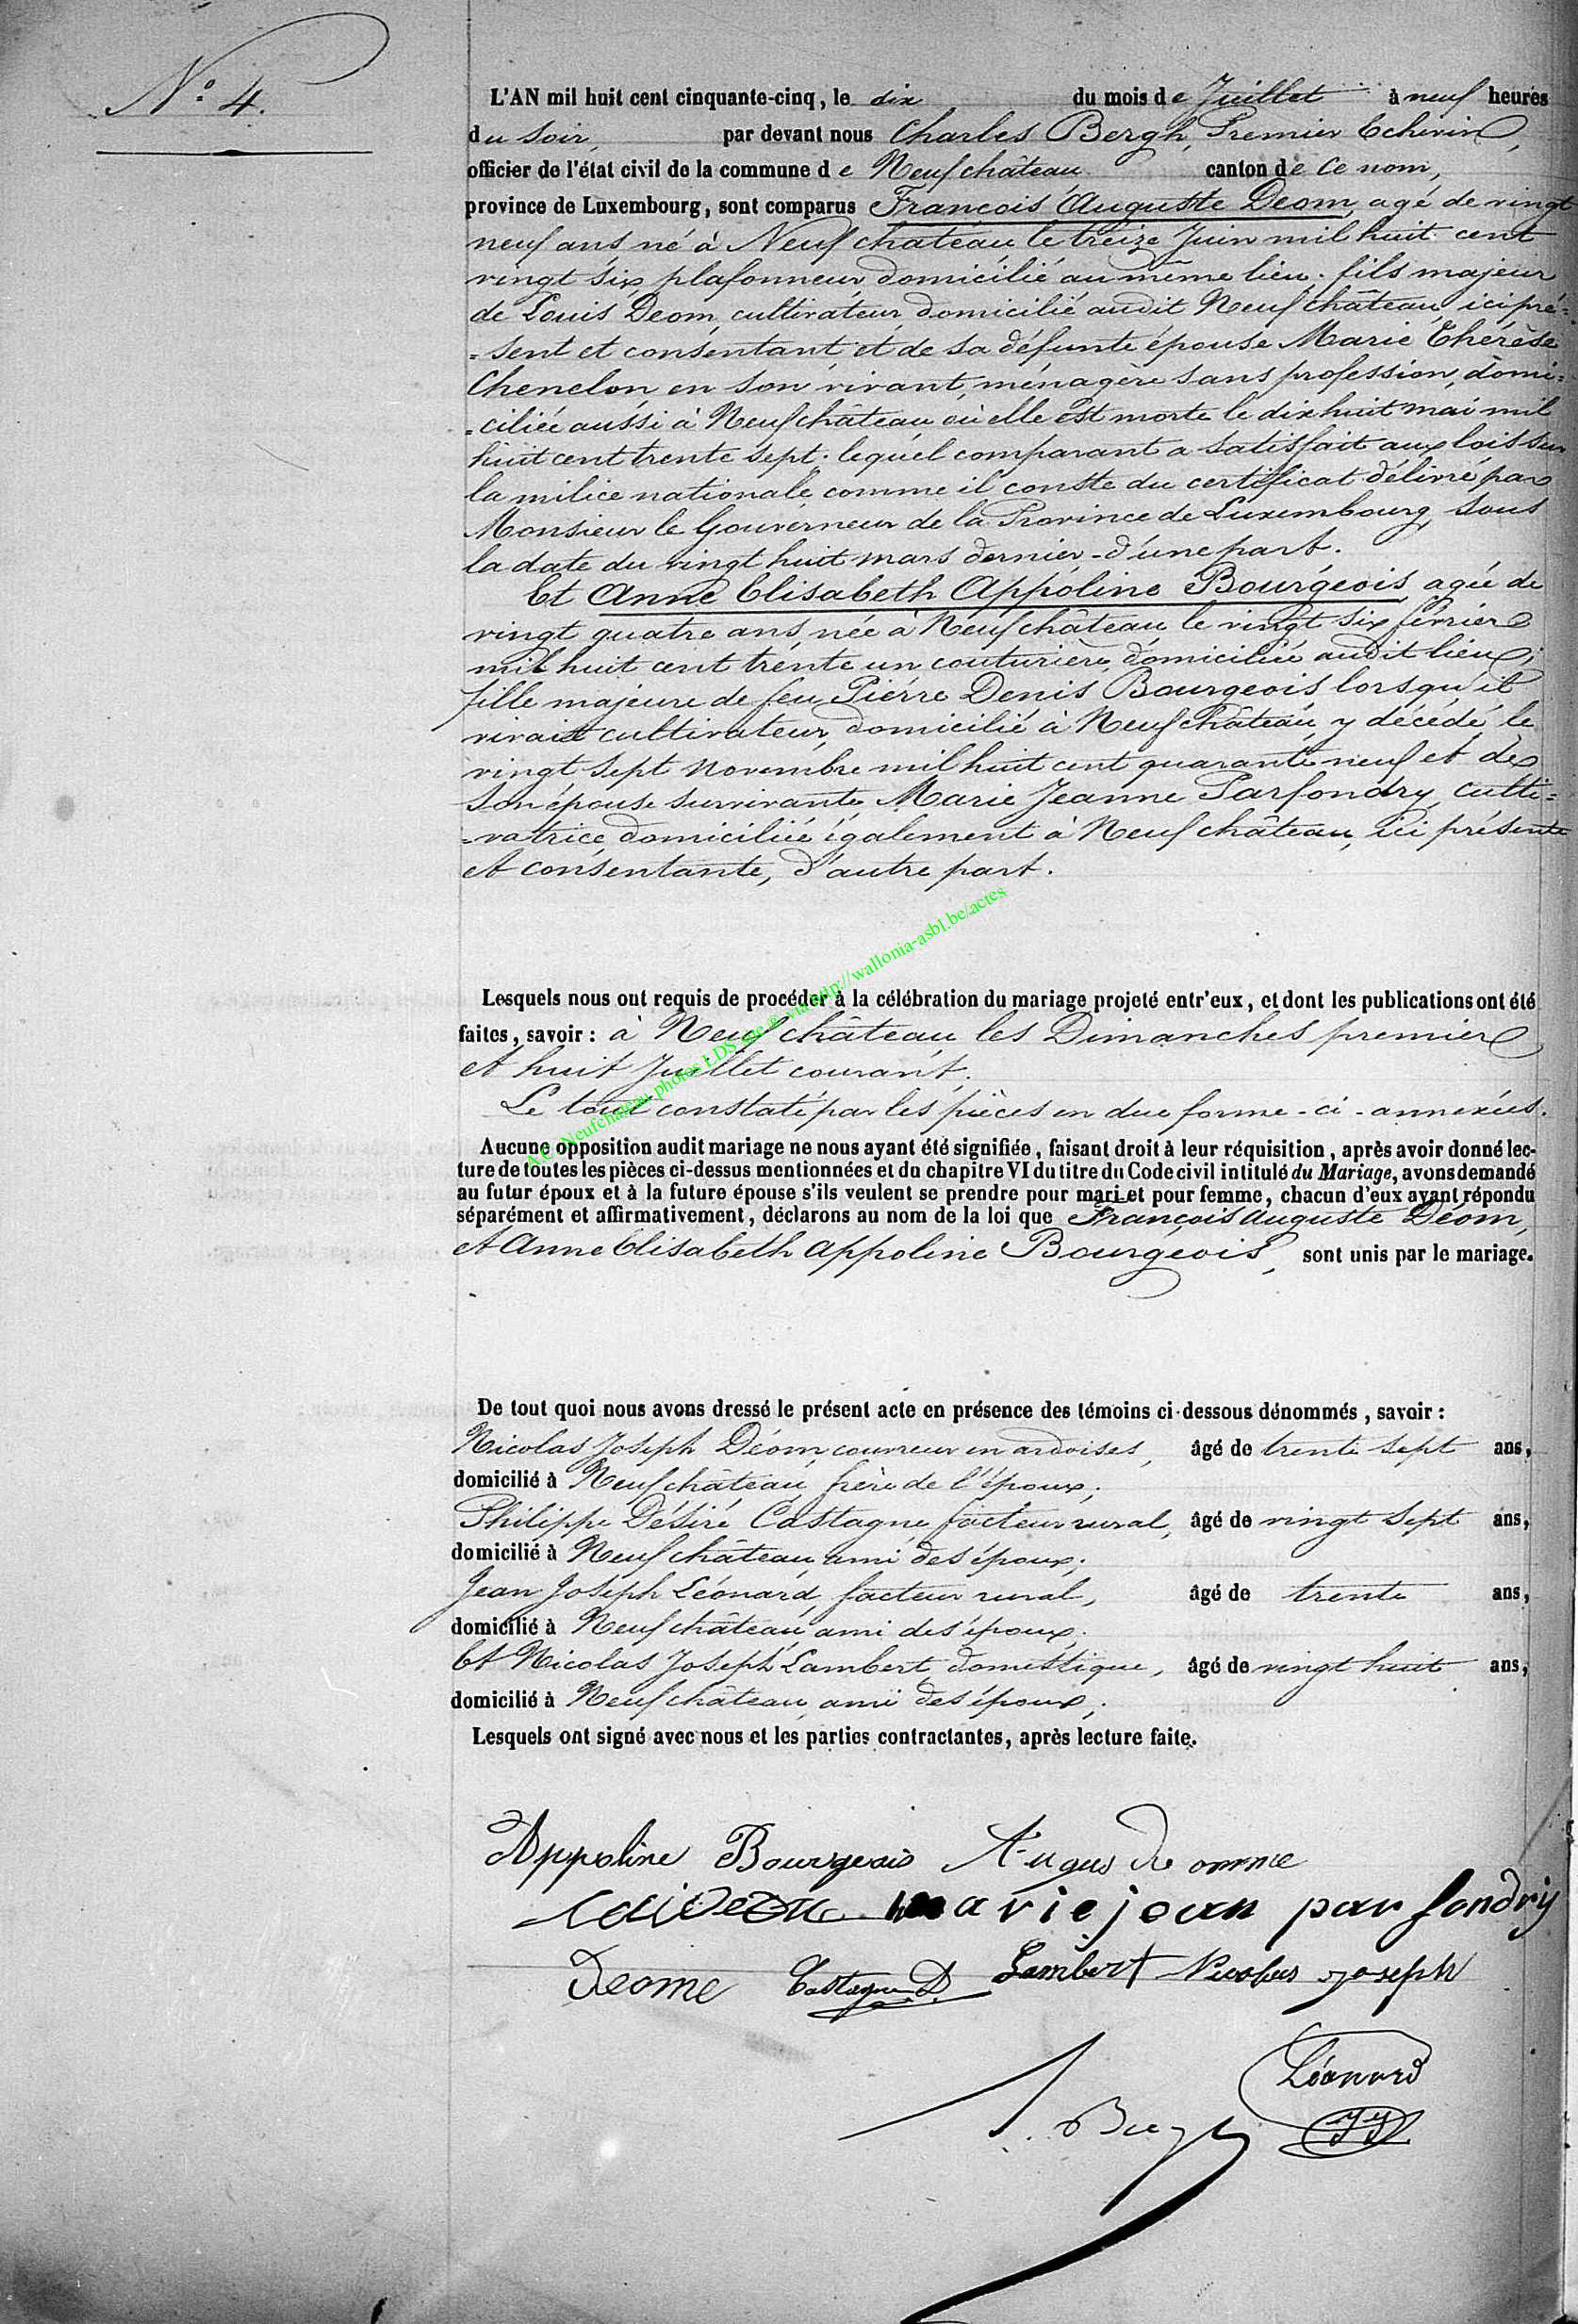 N° 4.
L'AN mil huit cent cinquante-cinq, le dix du mois de Juillet à neuf heures
du soir, par devant nous Charles Bergh, Premier Echevin,
officier de l'état civil de la commune de Neufchâteau canton de ce nom,
province de Luxembourg, sont comparus François Auguste Deom, agé de vingt
neuf ans, né à Neufchâteau le treize Juin mil huit cent
vingt six, plafonneur, domicilié au même lieu. fils majeur
de Louis Deom, cultivateur, domicilié audit Neufchâteau, ici pré=
=sent et consentant, et de sa défunte épouse Marie Thérèse
Chenelon, en son vivant, ménagère sans profession, domi=
=ciliée aussi à Neufchâteau où elle est morte le dix huit mai mil
huit cent trente sept. lequel comparant a satisfait aux lois sur
la milice nationale comme il conste du certificat délivré par
Monsieur le Gouverneur de la Province de Luxembourg, sous
la date du vingt huit mars dernier - d'une part.
Et Anne Elisabeth Appoline Bourgeois, agée de
vingt quatre ans, née à Neufchâteau le vingt six février
mil huit cent trente un, couturière, domiciliée audit lieu;
fille majeure de feu Pierre Denis Bourgeois lorsqu'il
vivait cultivateur, domicilié à Neufchâteau, y décédé le
vingt sept novembre mil huit cent quarante neuf et de
son épouse survivante Marie Jeanne Parfondry, culti=
=vatrice, domiciliée également à Neufchâteau, ici présente
et consentante, d'autre part.
Lesquels nous ont requis de procéder à la célébration du mariage projeté entr'eux, et dont les publications ont été
faites, savoir : à Neufchâteau, les Dimanches premier
et huit Juillet courant.
Le tout constaté par les pièces en due forme - ci - annexées.
A.C. Neufchateau photos LDS via http://wallonia-asbl.be/actes
Aucune opposition audit mariage ne nous ayant été signifiée, faisant droit à leur réquisition, après avoir donné lec-
ture de toutes les pièces ci-dessus mentionnées et du chapitre VI du titre du Code civil intitulé du Mariage, avons demandé
au futur époux et à la future épouse s'ils veulent se prendre pour mari et pour femme, chacun d'eux ayant répondu
séparément et affirmativement, déclarons au nom de la loi que François Auguste Déom,
et Anne Elisabeth Appoline Bourgeois, sont unis par le mariage.
De tout quoi nous avons dressé le présent acte en présence des témoins ci-dessous dénommés, savoir :
Nicolas Joseph Déom, couvreur en ardoises, âgé de trente sept ans,
domicilié à Neufchâteau, frère de l'époux;
Philippe Désiré Castagne, facteur rural, âgé de vingt sept ans,
domicilié à Neufchâteau, ami des époux;
Jean Joseph Léonard, facteur rural, âgé de trente ans,
domicilié à Neufchâteau, ami des époux;
Et Nicolas Joseph Lambert, domestique, âgé de vingt huit ans,
domicilié à Neufchâteau, ami des époux;
Lesquels ont signé avec nous et les parties contractantes, après lecture faite.
Appoline Bourgeois Augus De omme
marie jean parfondry
Deome Castagne D. Lambert Nicolas joseph
Léonard
JJ